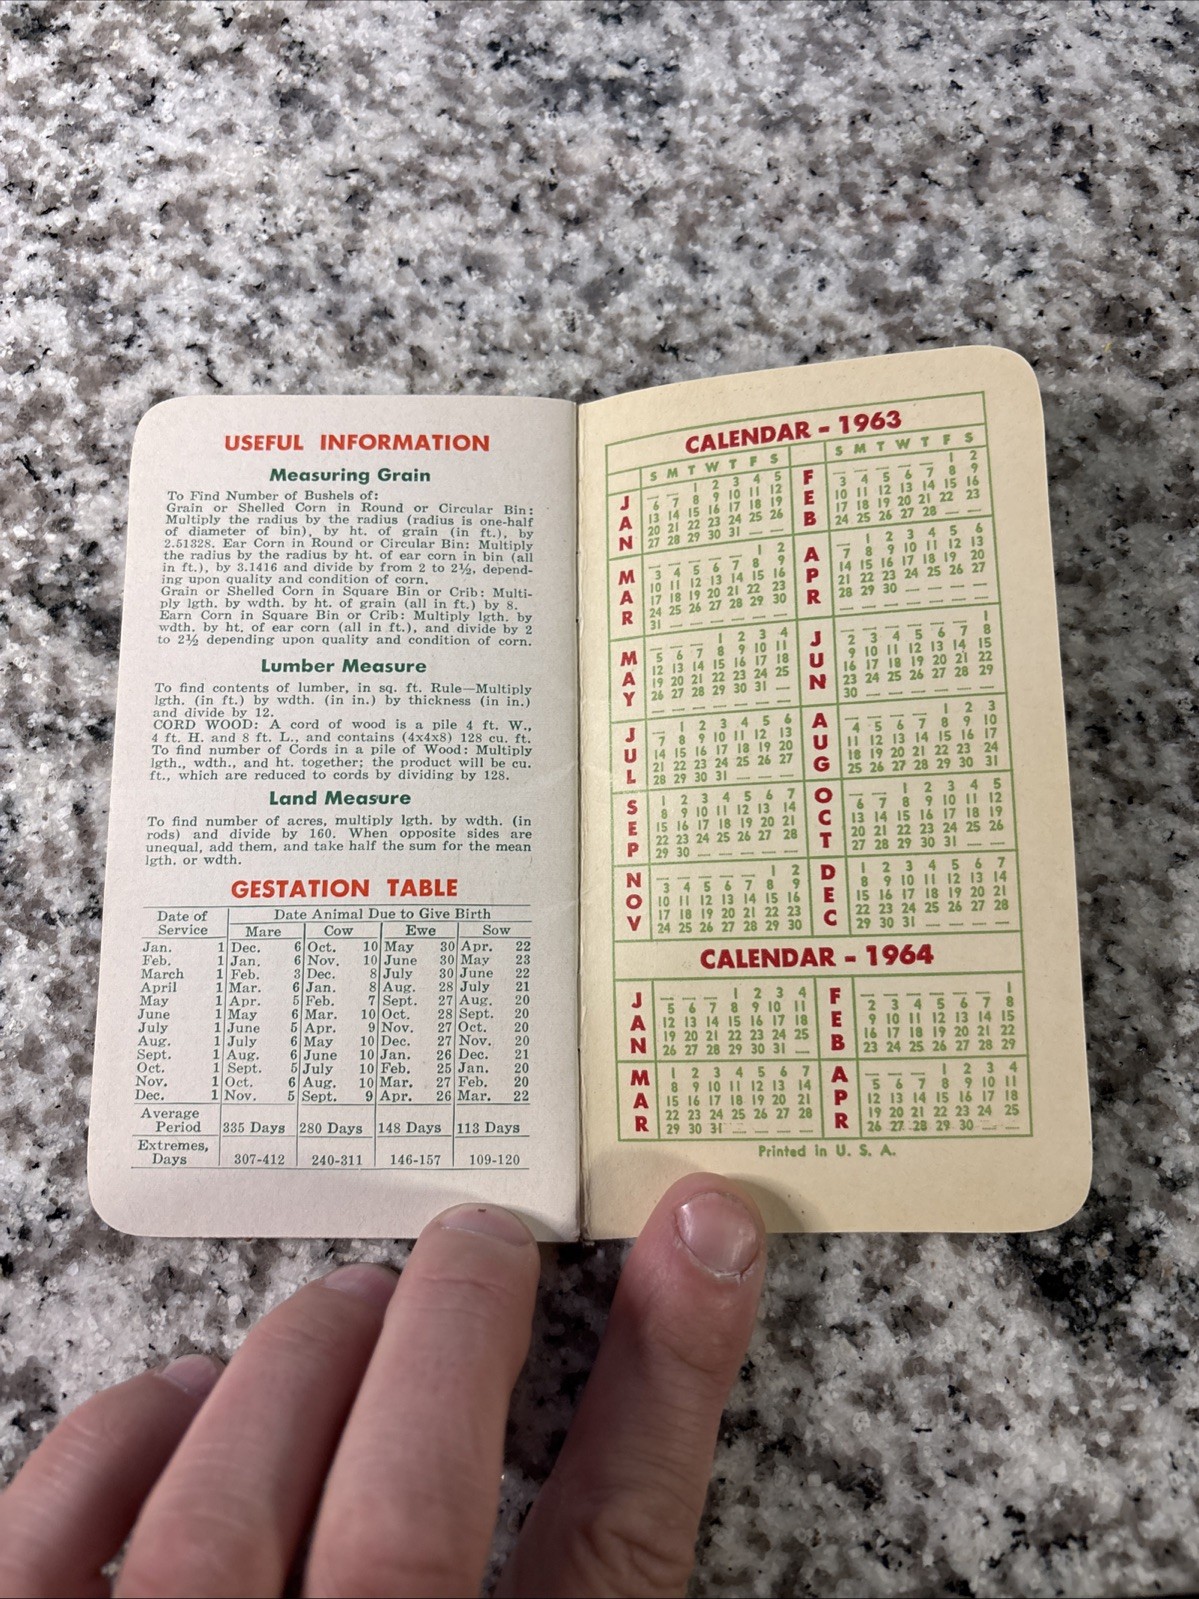 USEFUL INFORMATION
Measuring Grain
To Find Number of Bushels of:
Grain or Shelled Corn in Round or Circular Bin:
Multiply the radius by the radius (radius is one-half
of diameter of bin), by ht. of grain (in ft.), by
2.51328. Ear Corn in Round or Circular Bin: Multiply
the radius by the radius by ht. of ear corn in bin (all
in ft.), by 3.1416 and divide by from 2 to 2½, depend-
ing upon quality and condition of corn.
Grain or Shelled Corn in Square Bin or Crib: Multi-
ply lgth. by wdth. by ht. of grain (all in ft.) by 8.
Earn Corn in Square Bin or Crib: Multiply lgth. by
wdth. by ht. of ear corn (all in ft.), and divide by 2
to 2½ depending upon quality and condition of corn.
Lumber Measure
To find contents of lumber, in sq. ft. Rule—Multiply
lgth. (in ft.) by wdth. (in in.) by thickness (in in.)
and divide by 12.
CORD WOOD: A cord of wood is a pile 4 ft. W.,
4 ft. H. and 8 ft. L., and contains (4x4x8) 128 cu. ft.
To find number of Cords in a pile of Wood: Multiply
lgth., wdth., and ht. together; the product will be cu.
ft., which are reduced to cords by dividing by 128.
Land Measure
To find number of acres, multiply lgth. by wdth. (in
rods) and divide by 160. When opposite sides are
unequal, add them, and take half the sum for the mean
lgth. or wdth.
GESTATION TABLE
Date of Service Date Animal Due to Give Birth
Mare Cow Ewe Sow
Jan. 1 Dec. 6 Oct. 10 May 30 Apr. 22
Feb. 1 Jan. 6 Nov. 10 June 30 May 23
March 1 Feb. 3 Dec. 8 July 30 June 22
April 1 Mar. 6 Jan. 8 Aug. 28 July 21
May 1 Apr. 5 Feb. 7 Sept. 27 Aug. 20
June 1 May 6 Mar. 10 Oct. 28 Sept. 20
July 1 June 5 Apr. 9 Nov. 27 Oct. 20
Aug. 1 July 6 May 10 Dec. 27 Nov. 20
Sept. 1 Aug. 6 June 10 Jan. 26 Dec. 21
Oct. 1 Sept. 5 July 10 Feb. 25 Jan. 20
Nov. 1 Oct. 6 Aug. 10 Mar. 27 Feb. 20
Dec. 1 Nov. 5 Sept. 9 Apr. 26 Mar. 22
Average Period 335 Days 280 Days 148 Days 113 Days
Extremes, Days 307-412 240-311 146-157 109-120
CALENDAR - 1963
S M T W T F S
JAN
1 2 3 4 5
6 7 8 9 10 11 12
13 14 15 16 17 18 19
20 21 22 23 24 25 26
27 28 29 30 31
S M T W T F S
FEB
1 2
3 4 5 6 7 8 9
10 11 12 13 14 15 16
17 18 19 20 21 22 23
24 25 26 27 28
MAR
1 2
3 4 5 6 7 8 9
10 11 12 13 14 15 16
17 18 19 20 21 22 23
24 25 26 27 28 29 30
31
APR
1 2 3 4 5 6
7 8 9 10 11 12 13
14 15 16 17 18 19 20
21 22 23 24 25 26 27
28 29 30
MAY
1 2 3 4
5 6 7 8 9 10 11
12 13 14 15 16 17 18
19 20 21 22 23 24 25
26 27 28 29 30 31
JUN
1
2 3 4 5 6 7 8
9 10 11 12 13 14 15
16 17 18 19 20 21 22
23 24 25 26 27 28 29
30
JUL
1 2 3 4 5 6
7 8 9 10 11 12 13
14 15 16 17 18 19 20
21 22 23 24 25 26 27
28 29 30 31
AUG
1 2 3
4 5 6 7 8 9 10
11 12 13 14 15 16 17
18 19 20 21 22 23 24
25 26 27 28 29 30 31
SEP
1 2 3 4 5 6 7
8 9 10 11 12 13 14
15 16 17 18 19 20 21
22 23 24 25 26 27 28
29 30
OCT
1 2 3 4 5
6 7 8 9 10 11 12
13 14 15 16 17 18 19
20 21 22 23 24 25 26
27 28 29 30 31
NOV
1 2
3 4 5 6 7 8 9
10 11 12 13 14 15 16
17 18 19 20 21 22 23
24 25 26 27 28 29 30
DEC
1 2 3 4 5 6 7
8 9 10 11 12 13 14
15 16 17 18 19 20 21
22 23 24 25 26 27 28
29 30 31
CALENDAR - 1964
JAN
1 2 3 4
5 6 7 8 9 10 11
12 13 14 15 16 17 18
19 20 21 22 23 24 25
26 27 28 29 30 31
FEB
1
2 3 4 5 6 7 8
9 10 11 12 13 14 15
16 17 18 19 20 21 22
23 24 25 26 27 28 29
MAR
1 2 3 4 5 6 7
8 9 10 11 12 13 14
15 16 17 18 19 20 21
22 23 24 25 26 27 28
29 30 31
APR
1 2 3 4
5 6 7 8 9 10 11
12 13 14 15 16 17 18
19 20 21 22 23 24 25
26 27 28 29 30
Printed in U. S. A.